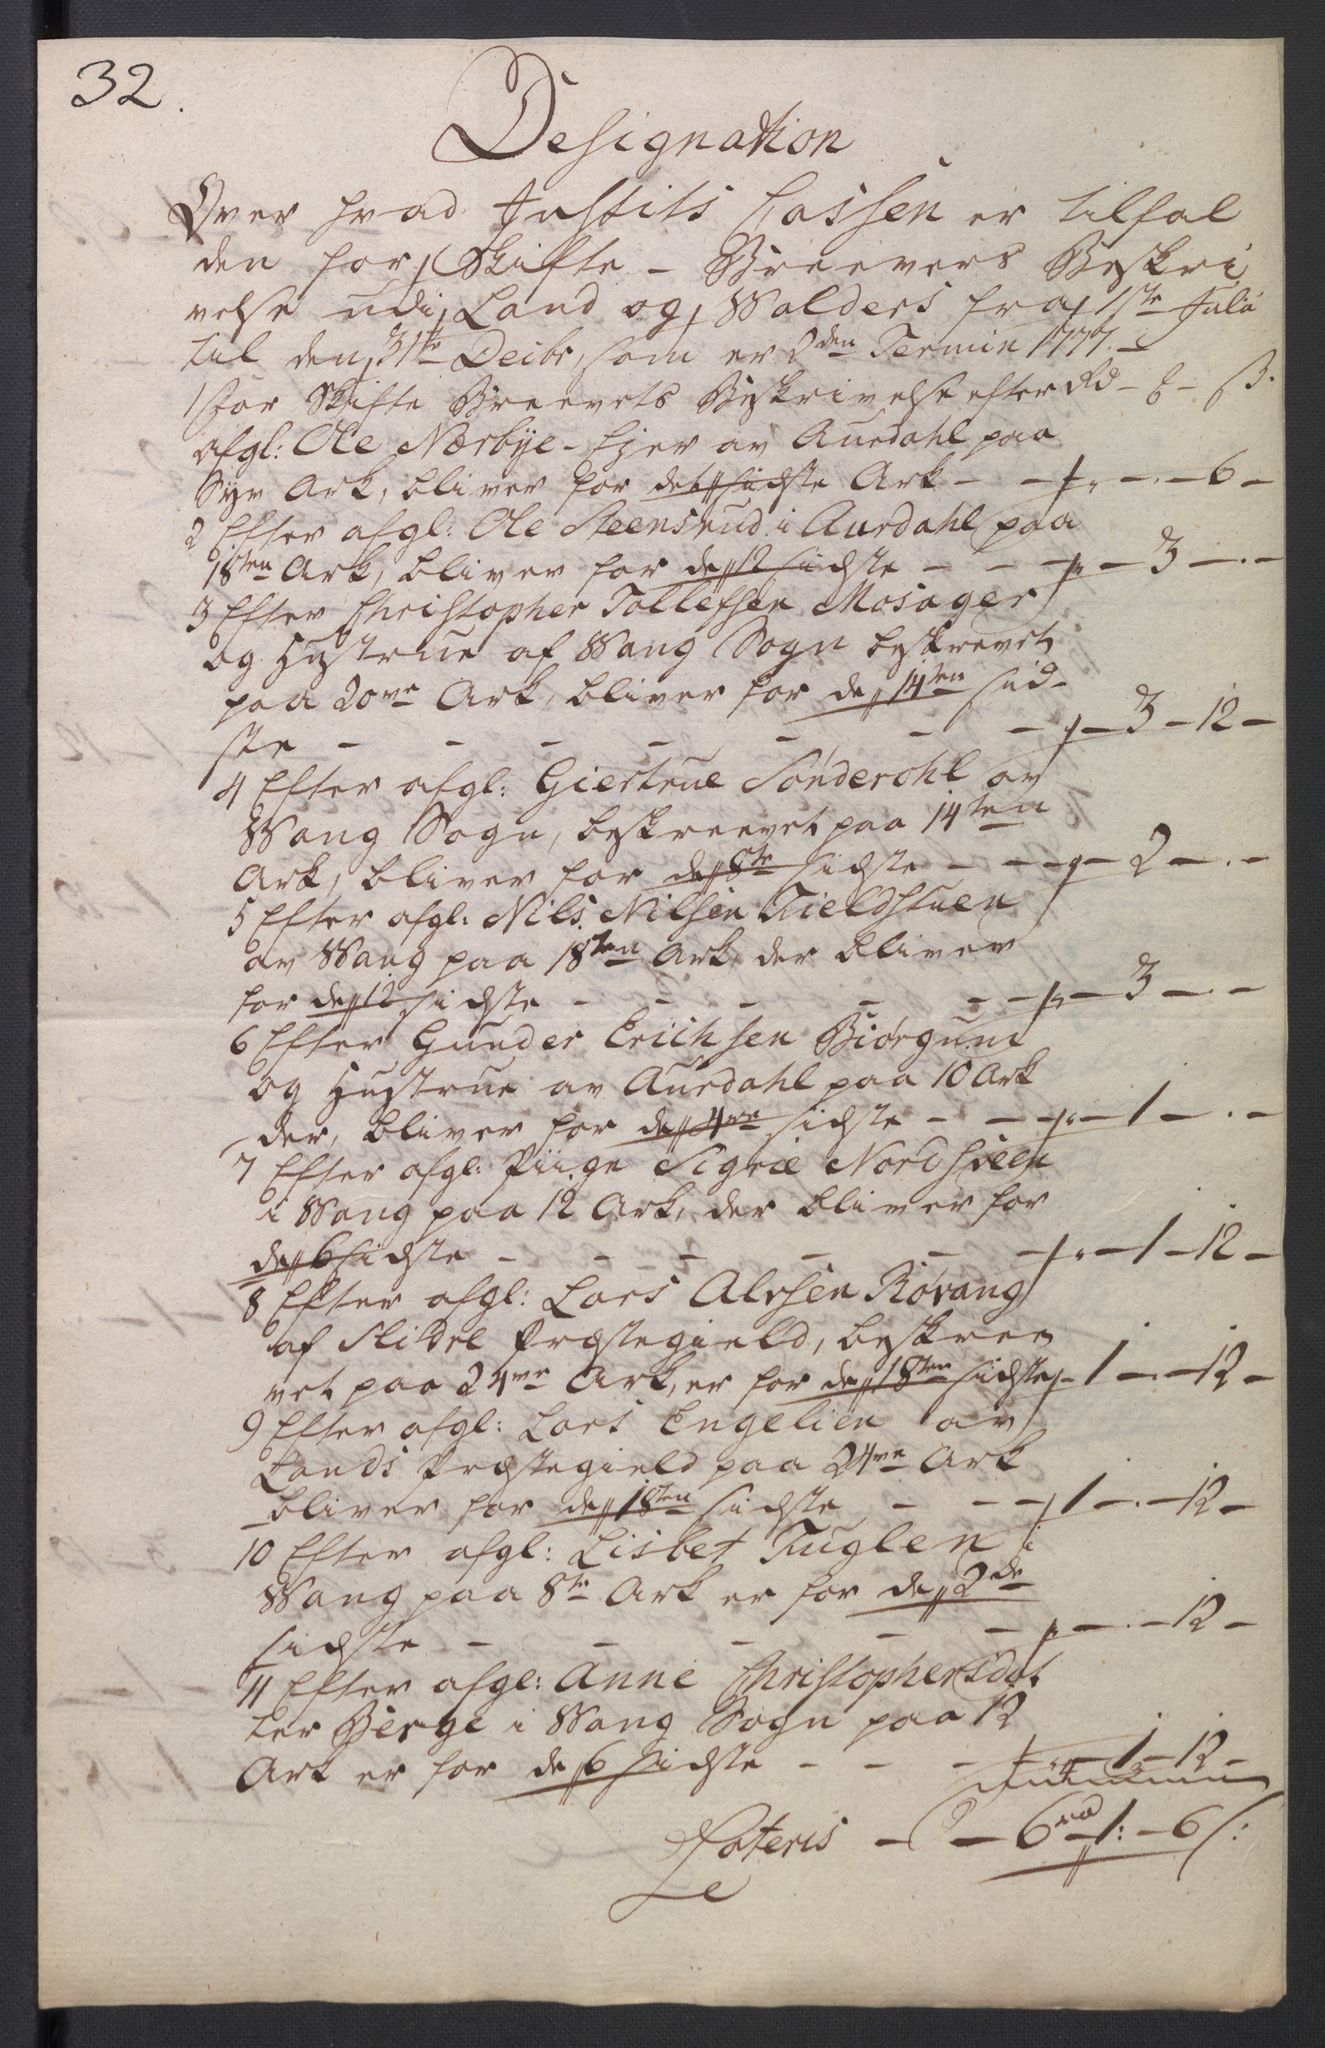 32.
Designation
Over hvad Justits Cassen er tilfal
den for Skifte - Breevers Beskri
velse udi Land og Walders fra 1ste Julii
til den 31te Decbr, som er 2den Termin 1777.
1 For Skifte Breevets Beskrivelse efter Rd - ß.
afgl: Ole Nærbye - Ejer av Aurdahl paa
Syv Ark, bliver for det sidste Ark - - - 6 -
2 Efter afgl: Ole Steensrud i Aurdahl paa
18ten Ark, bliver for de 12 sidste - - - 3 - . -
3 Efter Christopher Tollefsen Mosager
og Hustrue af Wang Sogn beskrevet
paa 20ve Ark, bliver for de 14ten sid-
ste - - - - - - - 3 - 12 -
4 Efter afgl: Giertrue Sønderohl av
Wang Sogn, beskreevet paa 14ten
Ark, bliver for de 8te sidste - - - 2 - . -
5 Efter afgl: Nils Nilsen Fieldstuen
av Wang paa 18ten Ark, der bliver
for de 12 sidste - - - - - 3 - . -
6 Efter Gunder Erichsen Biørgum
og Hustrue av Aurdahl paa 10 Ark
der, bliver for de 4re sidste - - - 1 - . -
7 Efter afgl: Piige Sigrie Nordsveen
i Wang paa 12 Ark, der bliver for
de 6 sidste - - - - - - 1 - 12 -
8 Efter afgl: Lars Alvsen Røvang
af Slidre Præstegield, beskree
vet paa 24ve Ark, er for de 18ten sidste 1 - . - 12 -
9 Efter afgl: Lars Engelien av
Lands Præstegield paa 24ve Ark
bliver for de 18ten sidste - - - 1 - . - 12 -
10 Efter afgl: Lisbet Fuglen i
Wang paa 8te Ark er for de 2de
sidste - - - - - - . - 12 -
11 Efter afgl: Anne Christophersdat
ter Berge i Wang Sogn paa 12
Ark er for de 6 sidste - - - 1 - 12 -
Lateris - 6rd - 1: - 6ß: